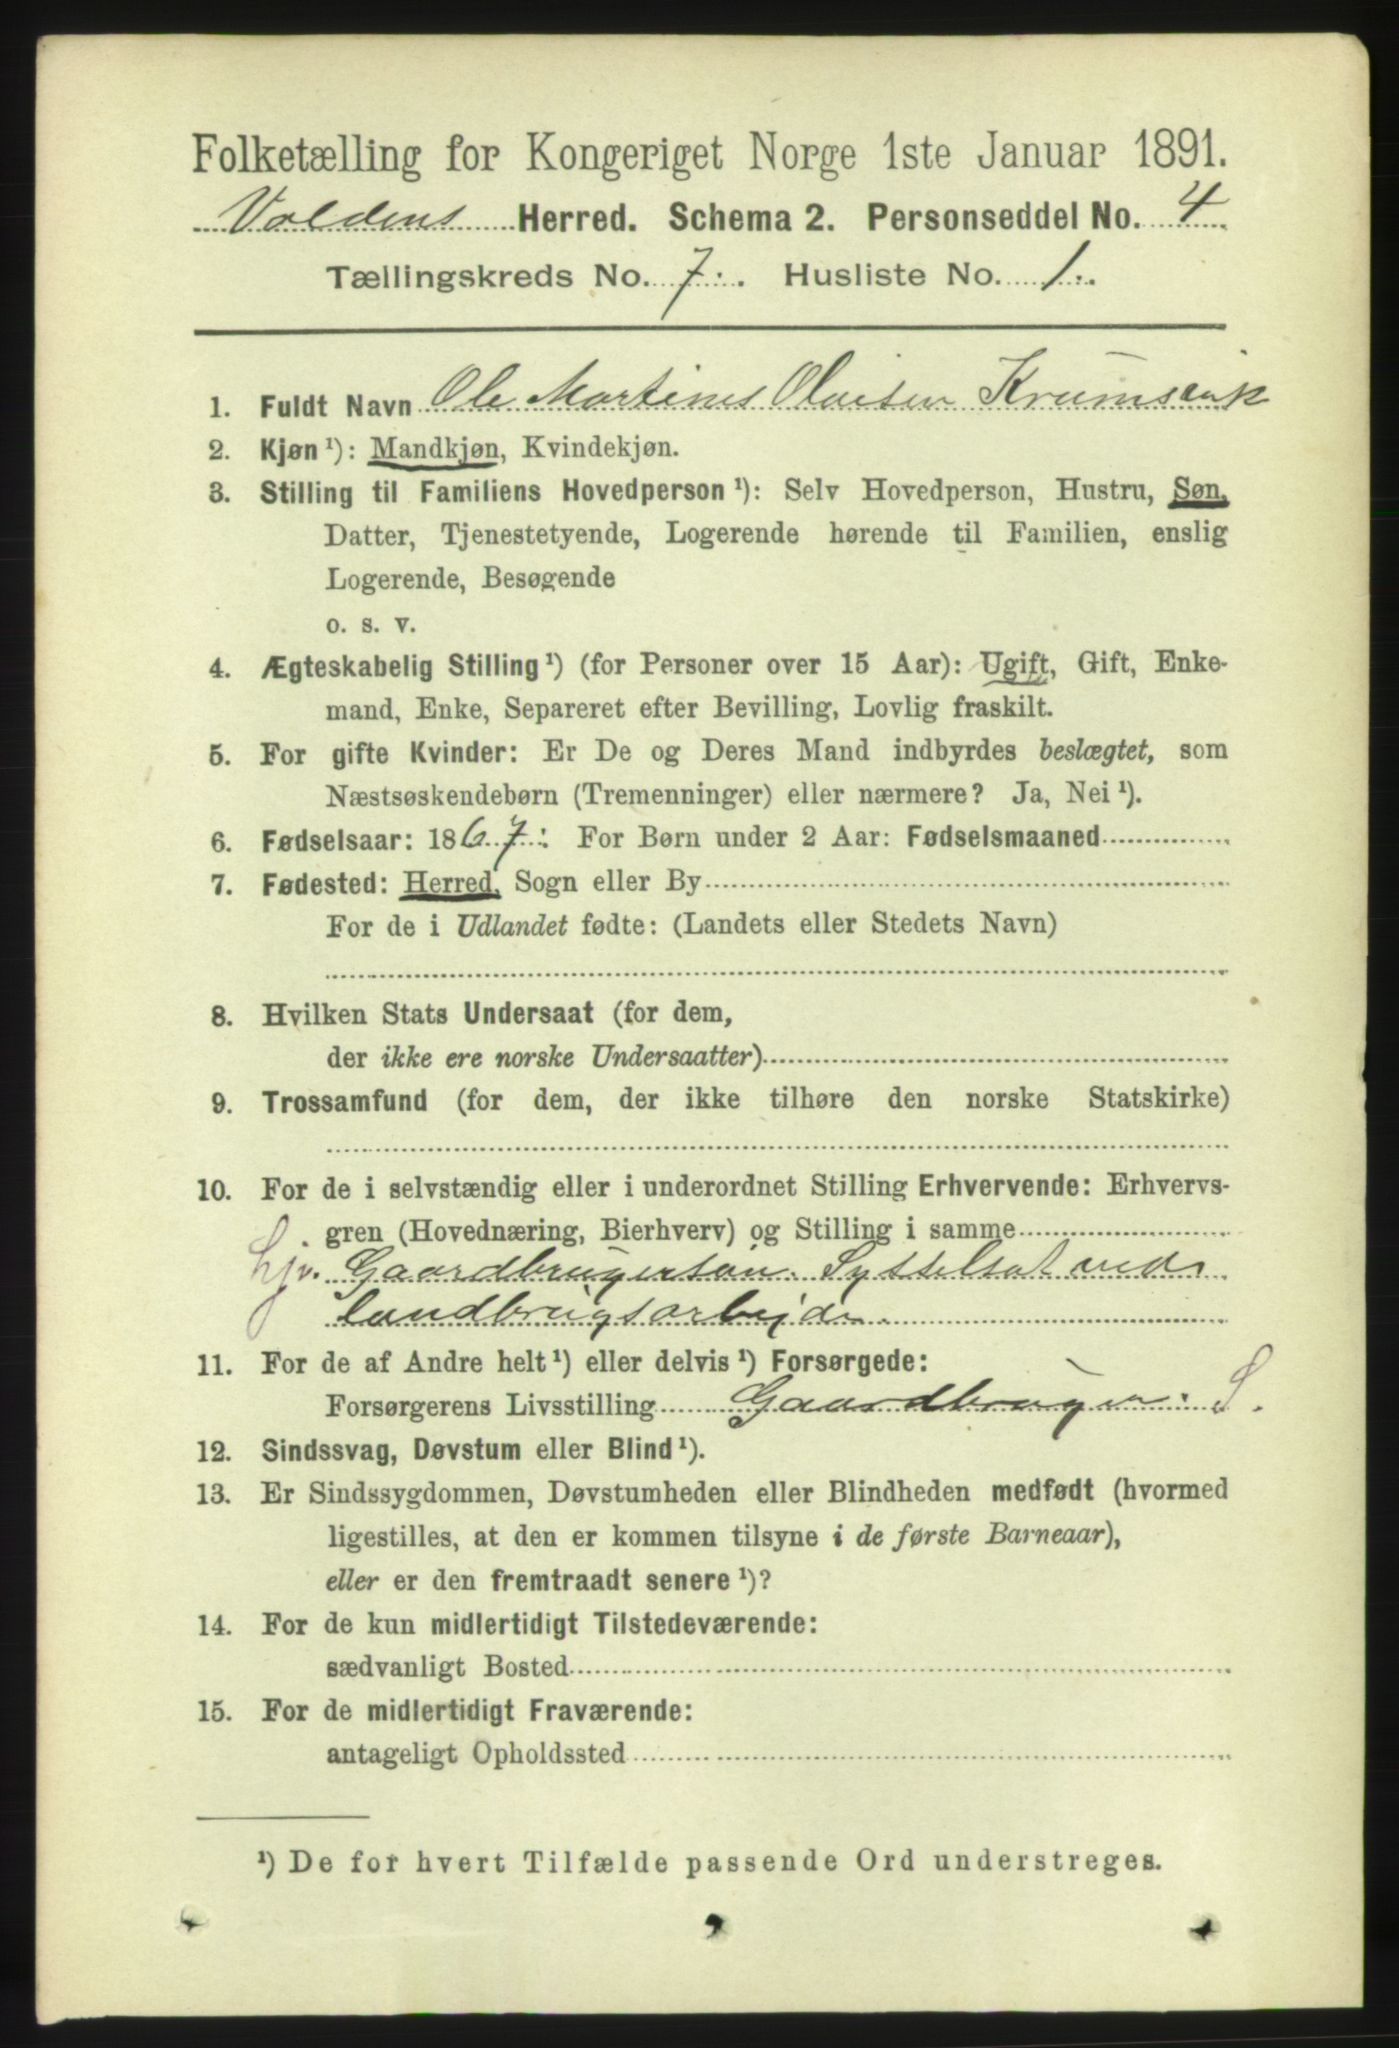 Folketælling for Kongeriget Norge 1ste Januar 1891.
Voldens Herred. Schema 2. Personseddel No. 4
Tællingskreds No. 7. Husliste No. 1.
1. Fuldt Navn Ole Martinus Olaisen Krumsvik
2. Kjøn ¹): Mandkjøn, Kvindekjøn.
3. Stilling til Familiens Hovedperson ¹): Selv Hovedperson, Hustru, Søn,
Datter, Tjenestetyende, Logerende hørende til Familien, enslig
Logerende, Besøgende
o. s. v.
4. Ægteskabelig Stilling ¹) (for Personer over 15 Aar): Ugift, Gift, Enke-
mand, Enke, Separeret efter Bevilling, Lovlig fraskilt.
5. For gifte Kvinder: Er De og Deres Mand indbyrdes beslægtet, som
Næstsøskendebørn (Tremenninger) eller nærmere? Ja, Nei ¹).
6. Fødselsaar: 1867: For Børn under 2 Aar: Fødselsmaaned
7. Fødested: Herred, Sogn eller By
For de i Udlandet fødte: (Landets eller Stedets Navn)
8. Hvilken Stats Undersaat (for dem,
der ikke ere norske Undersaatter)
9. Trossamfund (for dem, der ikke tilhøre den norske Statskirke)
10. For de i selvstændig eller i underordnet Stilling Erhvervende: Erhvervs-
gren (Hovednæring, Bierhverv) og Stilling i samme
hjv. Gaardbrugersøn. Sysselsat ved
landbrugsarbejde.
11. For de af Andre helt ¹) eller delvis ¹) Forsørgede:
Forsørgerens Livsstilling Gaardbruger. S.
12. Sindssvag, Døvstum eller Blind ¹).
13. Er Sindssygdommen, Døvstumheden eller Blindheden medfødt (hvormed
ligestilles, at den er kommen tilsyne i de første Barneaar),
eller er den fremtraadt senere ¹)?
14. For de kun midlertidigt Tilstedeværende:
sædvanligt Bosted
15. For de midlertidigt Fraværende:
antageligt Opholdssted
¹) De for hvert Tilfælde passende Ord understreges.